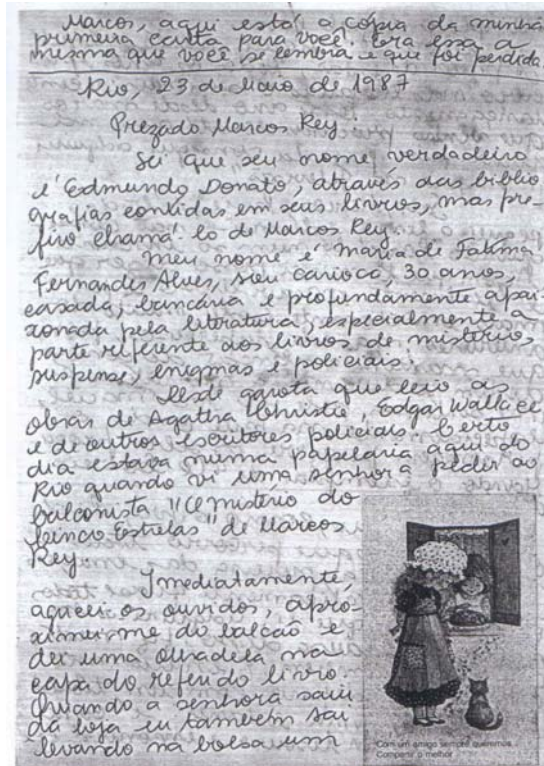 Marcos, aqui está a cópia da minha
primeira carta para você. Era essa a
mesma que você se lembra e que foi perdida.
Rio, 23 de Maio de 1987
Prezado Marcos Rey
Sei que seu nome verdadeiro
é Edmundo Donato, através das biblio
grafias contidas em seus livros, mas pre-
firo chamá-lo de Marcos Rey.
Meu nome é Maria de Fátima
Fernandes Alves, sou carioca, 30 anos,
casada, bancária e profundamente apai-
xonada pela literatura, especialmente a
parte referente aos livros de mistérios,
suspense, enigmas e policiais.
Desde garota que leio as
obras de Agatha Christie, Edgar Wallace
e de outros escritores policiais. Certo
dia estava numa papelaria aqui do
Rio quando vi uma senhora pedir ao
balconista "O mistério do
Cinco Estrelas" de Marcos
Rey.
Imediatamente,
agucei os ouvidos, apro-
ximei-me do balcão e
dei uma olhadela na
capa do referido livro.
Quando a senhora saiu
da loja eu também saí
levando na bolsa um
Com um amigo sempre queremos
Compartir o melhor